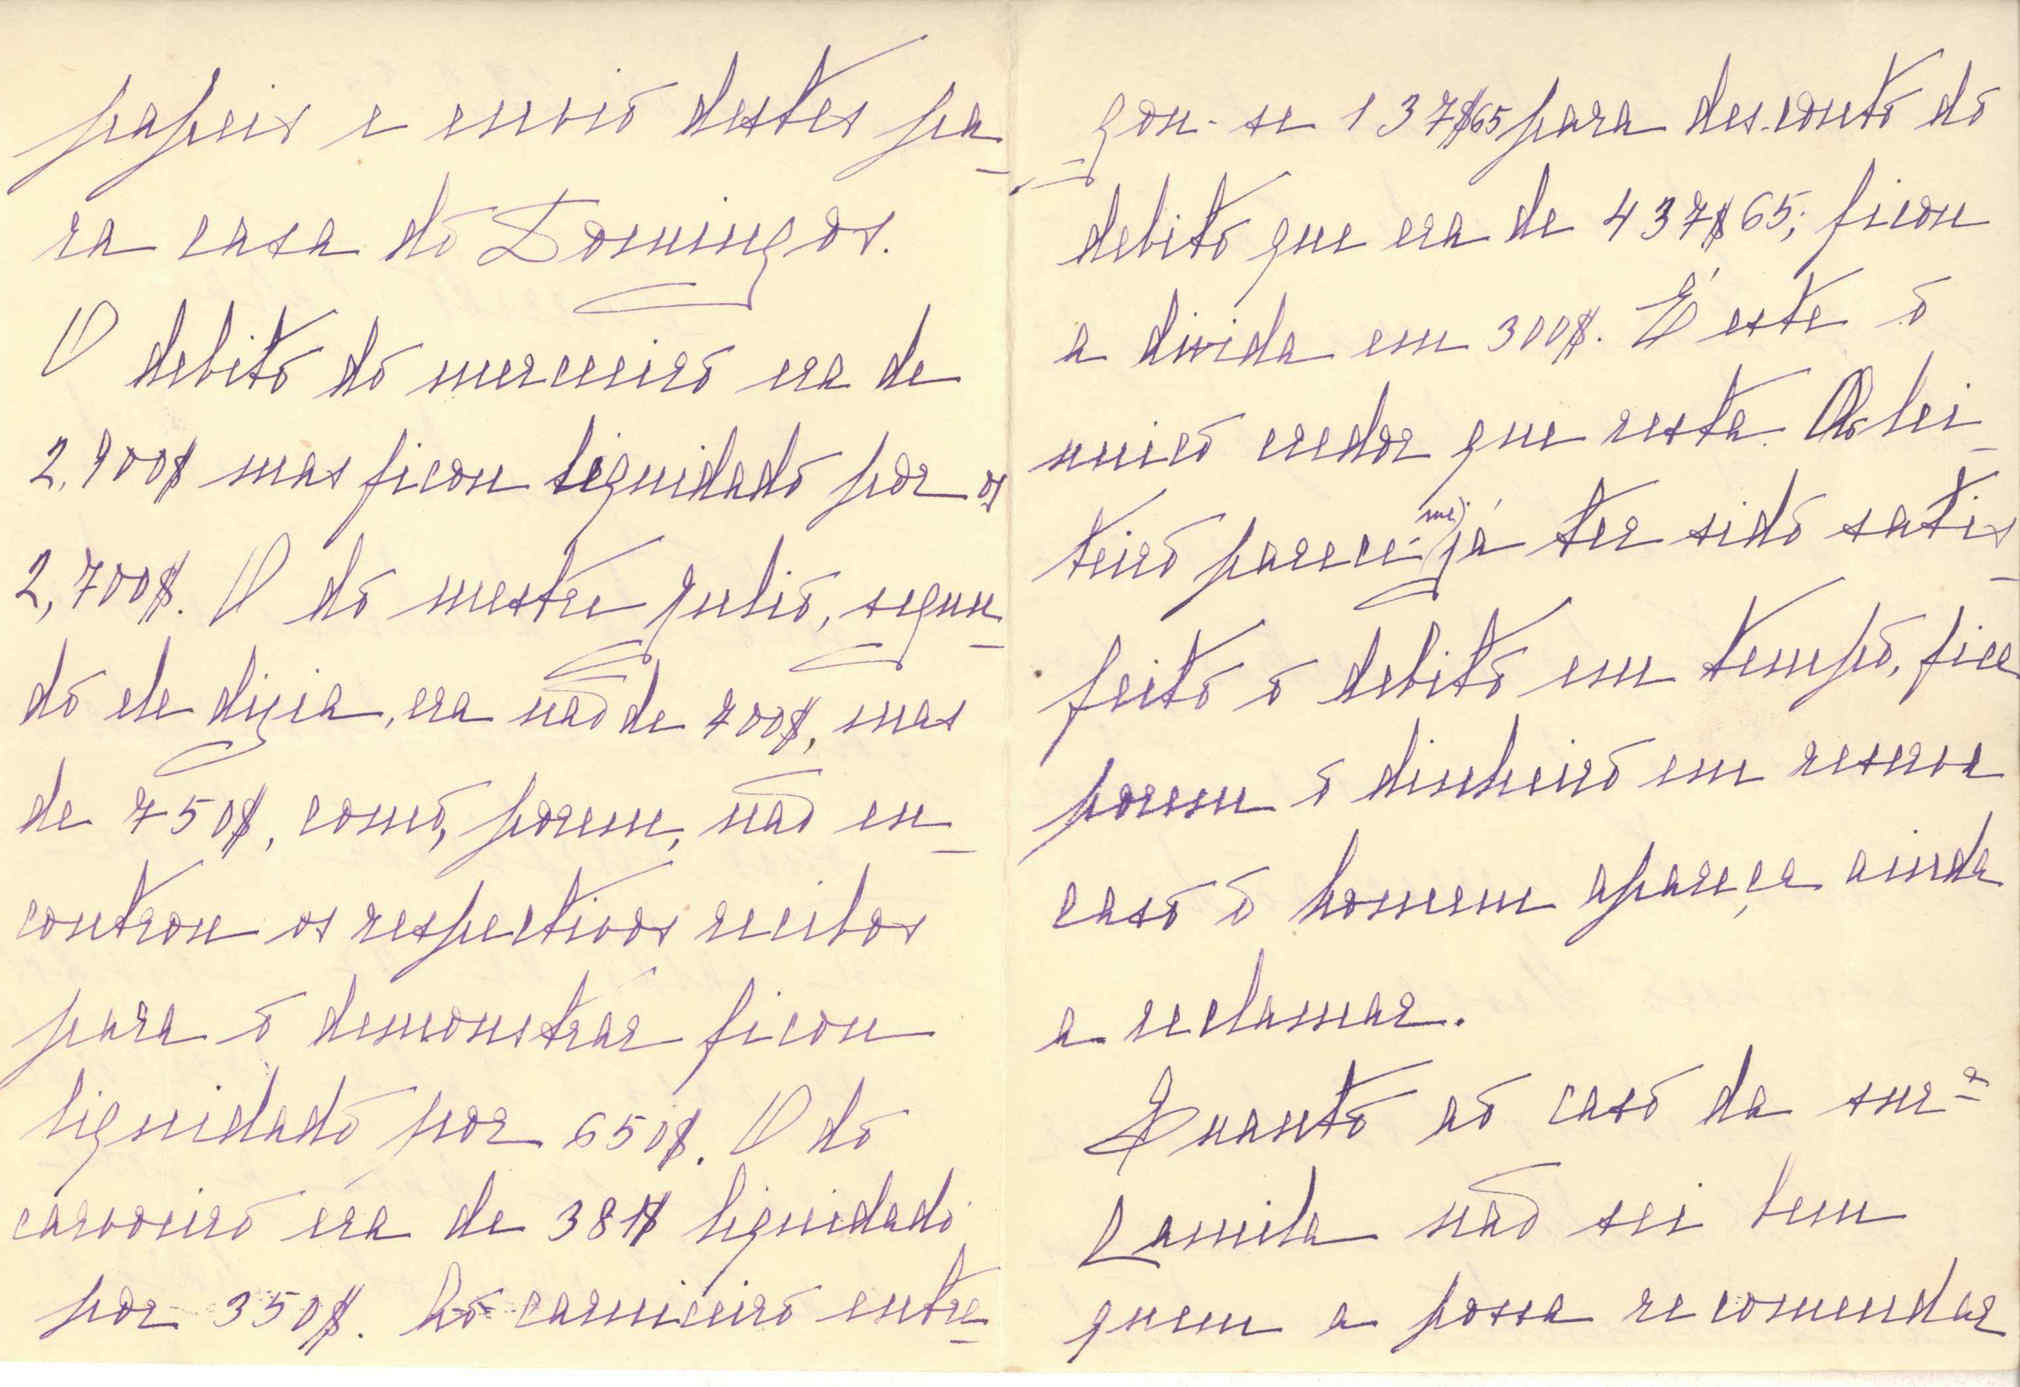 papeis e envio destes pa-
ra casa do Domingos.
O debito do merceeiro era de
2,900$ mas ficou liquidado por os
2,700$. O do mestre Julio, segun-
do ele dizia, era não de 700$, mas
de 750$, como, porem, não en-
controu os respectivos recibos
para o demonstrar ficou
liquidado por 650$. O do
carvoeiro era de 381$ liquidado
por 350$. Ao carniceiro entre-
gou-se 137$65 para desconto do
debito que era de 437$65; ficou
a divida em 300$. É este o
unico credor que resta. Ao lei-
teiro parece-me já ter sido satis-
feito o debito em tempo, fica
porem o dinheiro em reserva
caso o homem apareça ainda
a reclamar.
Quanto ao caso da snr.ª
Camila não sei bem
quem a possa recomendar